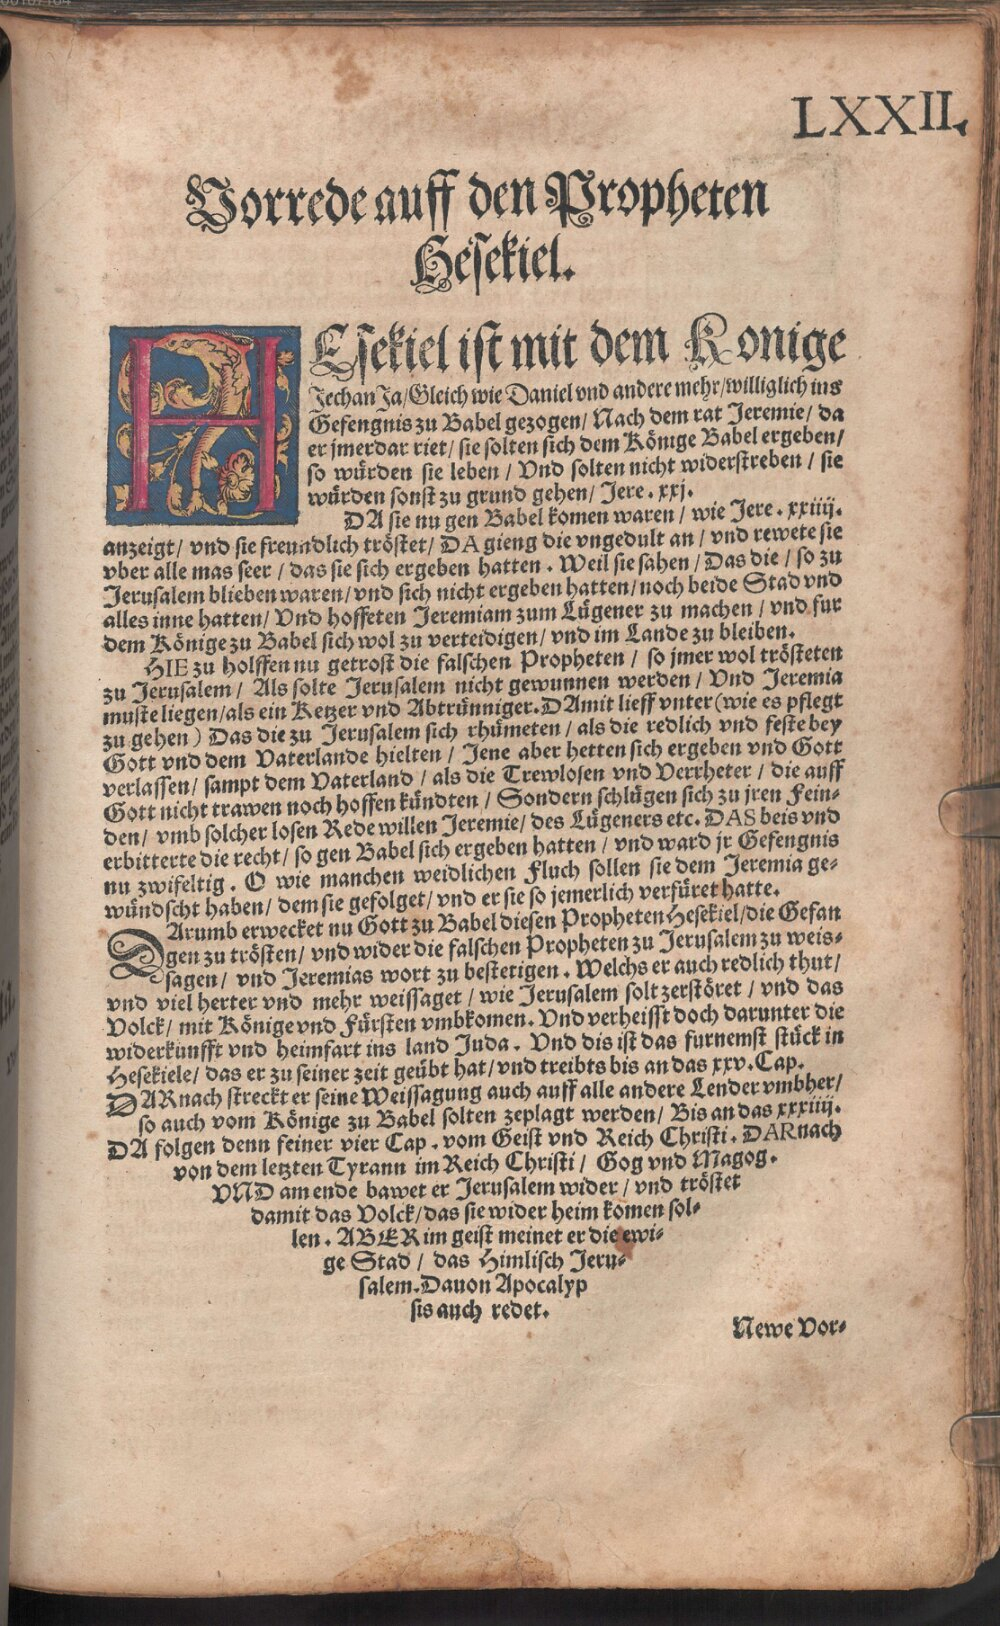 LXXII.
Vorrede auff den Propheten
Hesekiel.
HEsekiel ist mit dem Konige
Jechan Ja/Gleich wie Daniel vnd andere mehr/williglich ins
Gefengnis zu Babel gezogen/ Nach dem rat Jeremie/ da
er jmerdar riet/ sie solten sich dem Könige Babel ergeben/
so würden sie leben / Vnd solten nicht widerstreben / sie
würden sonst zu grund gehen/ Jere. xxj.
DA sie nu gen Babel komen waren / wie Jere. xxiiij.
anzeigt/ vnd sie freundlich tröstet/ DA gieng die vngedult an / vnd rewete sie
vber alle mas seer / das sie sich ergeben hatten. Weil sie sahen/ Das die / so zu
Jerusalem blieben waren/ vnd sich nicht ergeben hatten/ noch beide Stad vnd
alles inne hatten/ Vnd hoffeten Jeremiam zum Lügener zu machen / vnd fur
dem Könige zu Babel sich wol zu verteidigen/ vnd im Lande zu bleiben.
HIE zu holffen nu getrost die falschen Propheten / so jmer wol trösteten
zu Jerusalem/ Als solte Jerusalem nicht gewunnen werden/ Vnd Jeremia
muste liegen/als ein Ketzer vnd Abtrünniger. DAmit lieff vnter (wie es pflegt
zu gehen) Das die zu Jerusalem sich rhümeten / als die redlich vnd feste bey
Gott vnd dem Vaterlande hielten / Jene aber hetten sich ergeben vnd Gott
verlassen/ sampt dem Vaterland / als die Trewlosen vnd Verrheter / die auff
Gott nicht trawen noch hoffen kündten / Sondern schlügen sich zu jren Fein-
den/ vmb solcher losen Rede willen Jeremie/ des Lügeners etc. DAS beis vnd
erbitterte die recht/ so gen Babel sich ergeben hatten / vnd ward jr Gefengnis
nu zwifeltig. O wie manchen weidlichen Fluch sollen sie dem Jeremia ge-
wündscht haben/ dem sie gefolget/ vnd er sie so jemerlich verfüret hatte.
DArumb erwecket nu Gott zu Babel diesen Propheten Hesekiel/die Gefan
gen zu trösten/ vnd wider die falschen Propheten zu Jerusalem zu weis-
sagen/ vnd Jeremias wort zu bestetigen. Welchs er auch redlich thut/
vnd viel herter vnd mehr weissaget / wie Jerusalem solt zerstöret / vnd das
Volck/ mit Könige vnd Fürsten vmbkomen. Vnd verheisst doch darunter die
widerkunfft vnd heimfart ins land Juda. Vnd dis ist das furnemst stück in
Hesekiele/ das er zu seiner zeit geübt hat/ vnd treibts bis an das xxv. Cap.
DARnach streckt er seine Weissagung auch auff alle andere Lender vmbher/
so auch vom Könige zu Babel solten zeplagt werden/ Bis an das xxxiiij.
DA folgen denn feiner vier Cap. vom Geist vnd Reich Christi. DARnach
von dem letzten Tyrann im Reich Christi/ Gog vnd Magog.
VND am ende bawet er Jerusalem wider / vnd tröstet
damit das Volck/ das sie wider heim komen sol-
len. ABER im geist meinet er die ewi-
ge Stad / das Himlisch Jeru-
salem. Dauon Apocalyp
sis auch redet.
Newe Vor-